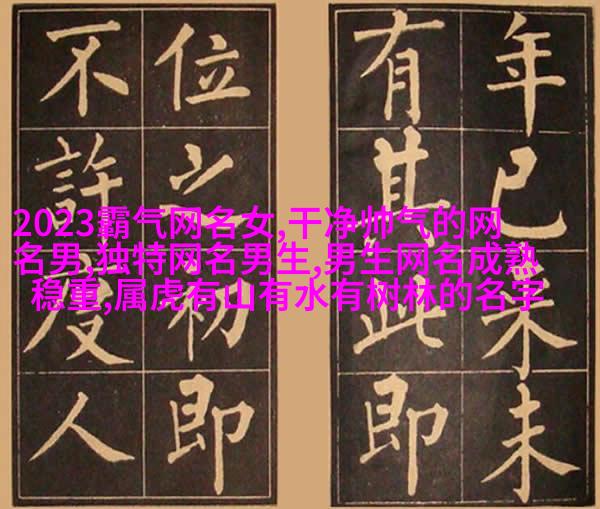 年已未
有其此即
位之初即
不許度人
2023霸气网名女,干净帅气的网
名男,独特网名男生,男生网名成熟
稳重,属虎有山有水有树林的名字